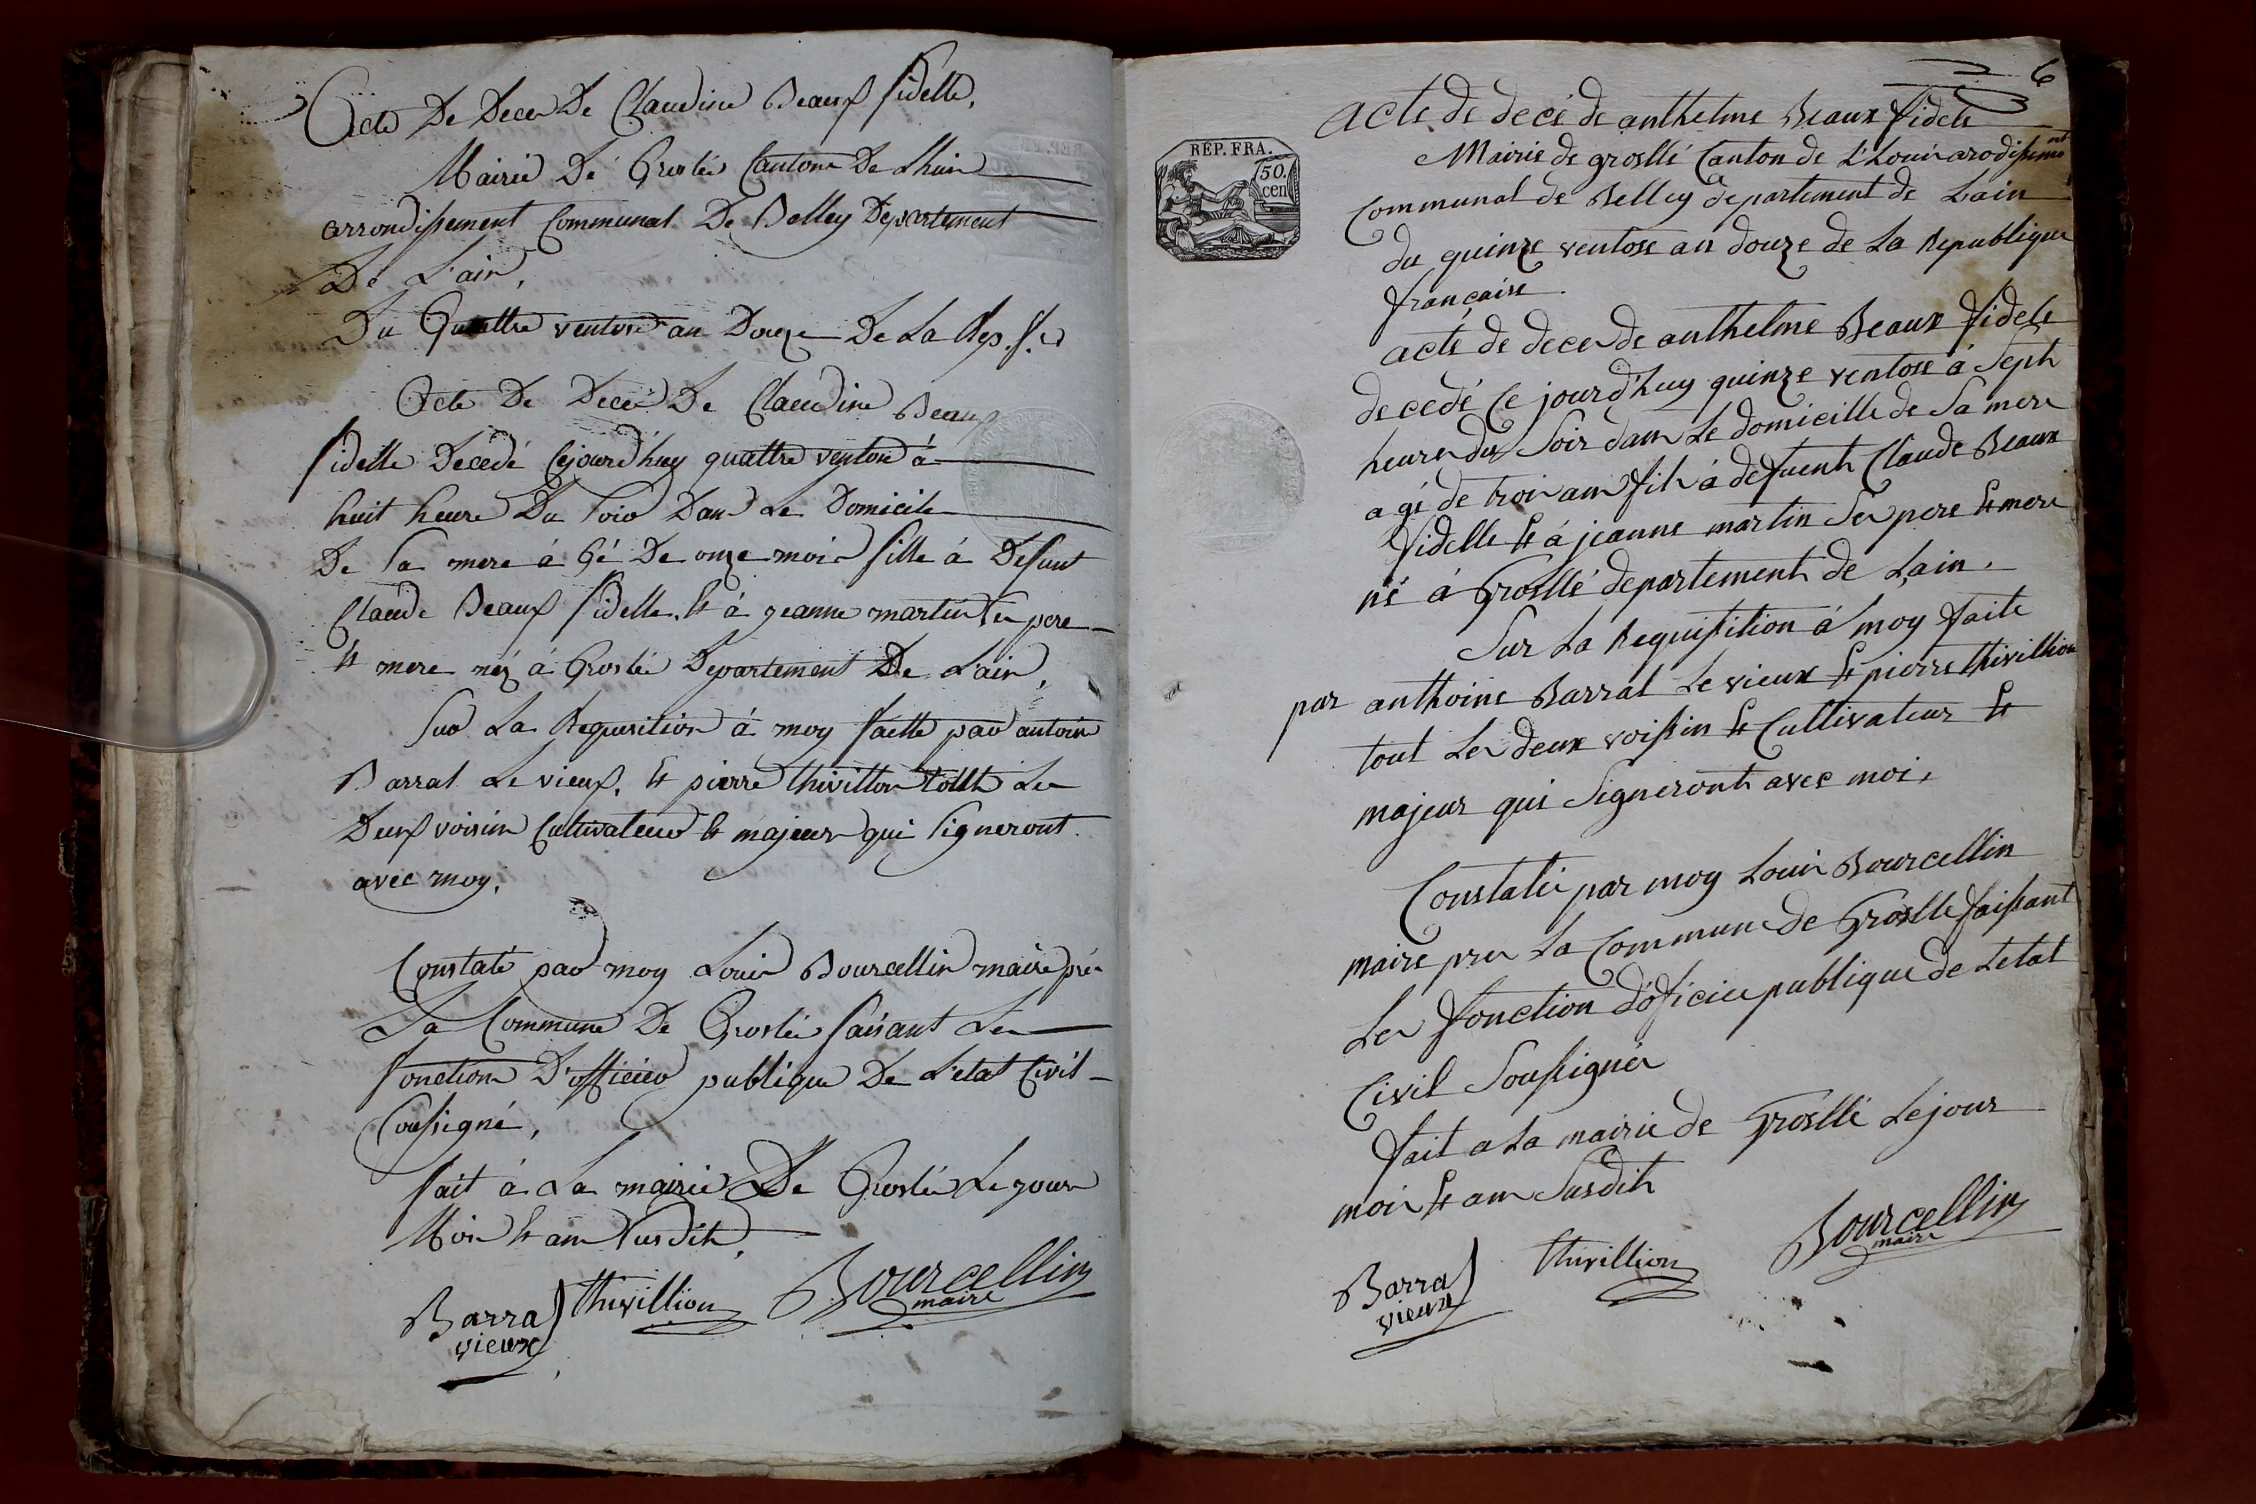 Acte De Deces De Claudine Beaux fidelle,
Mairie De Groslée Canton De Lhuis
arrondissement Communal De Belley Departement
De L'ain,
Du Quattre ventose an Douze De La Rep. f.se
Acte De Decés De Claudine Beaux
fidelle Decedé Cejourd'huy quattre ventose à
huit heure Du soir Dans Le Domicile
De sa mere à gé De onze mois fille à Defunt
Claude Beaux fidelle. et à jeanne martin ses pere
et mere néz à Groslée Departement De L'ain,
Sur La Requisition à moy faitte par antoine
Barral Le vieux. et pierre thivillon toutt Les
Deux voisins Cultivateurs et majeurs qui signeront
avec moy.
Constaté par moy Louis Bourcellin maire prés
La Commune De Groslée faisant Les
fonctions D'officier publique De L'etat Civil
soussigné,
fait à La mairie De Groslée Le jour
Mois et ans susdits,
Barral thivillion Bourcellin
vieux maire
6
acte de decé de anthelme Beaux fidele
REP. FRA.
50.
cen
Mairie de groslié Canton de L'houis arodissement
Communal de Belley departement de Lain
du quinze ventose an douze de La Republique
française.
acte de deces de anthelme Beaux fidele
decedé Ce jourd'huy quinze ventose à Septh
heures du Soir dans Le domicille de Sa mere
agé de trois ans fils à defuenth Claude Beaux
fidelle et à jeanne martin Ses pere et mere
né à Groslié departement de Lain.
Sur La Requisition à moy faite
par anthoine Barral Le vieux et pierre thivillion
tout Les deux voissin et Cultivateur et
majeur qui Signeronth avec moi,
Constatée par moy Louis Bourcellin
maire pres La Commune de Groslle faissant
Les fonction d'oficier publique de Letat
Civil Soussignés
fait a La mairie de Groslié Le jour
mois et ans Susdith
Barral thivillion Bourcellin
vieux maire